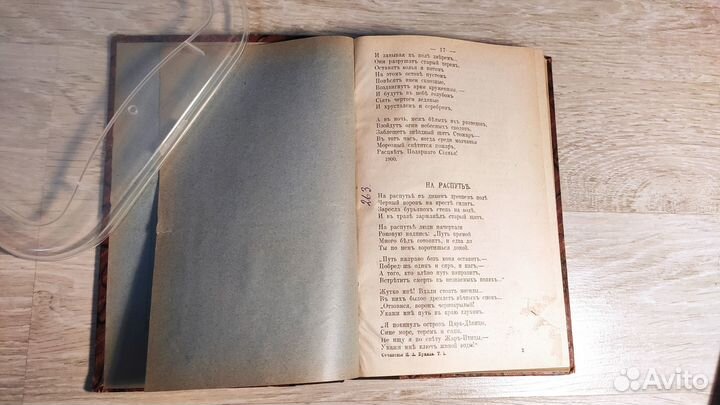 — 17 —
И завывая въ полѣ звѣремъ...
Они разрушатъ старый теремъ,
Оставятъ колья и потомъ
На этомъ остовѣ пустомъ
Повѣсятъ инеи сквозные,
Воздвигнутъ арки кружевныя,—
И будутъ въ небѣ голубомъ
Сіять чертоги ледяные
И хрусталемъ и серебромъ.
А въ ночь, межъ бѣлыхъ ихъ разводовъ,
Взойдутъ огни небесныхъ сводовъ,
Заблещетъ звѣздный щитъ Стожаръ—
Въ тотъ часъ, когда среди молчанья
Морозный свѣтится пожаръ,
Расцвѣтъ Полярнаго Сіянья!
1900.
НА РАСПУТЬѢ.
На распутьѣ въ дикомъ древнемъ полѣ
Черный воронъ на крестѣ сидитъ.
Заросла бурьяномъ степь на волѣ,
И въ травѣ заржавѣлъ старый щитъ.
На распутьѣ люди начертали
Роковую надпись: „Путь прямой
Много бѣдъ готовитъ, и едва ли
Ты по немъ воротишься домой.
„Путь направо безъ коня оставитъ,—
Побредешь одинъ и сиръ, и нагъ,—
А того, кто влѣво путь направитъ,
Встрѣтитъ смерть въ незнаемыхъ поляхъ..."
Жутко мнѣ! Вдали стоятъ могилы...
Въ нихъ былое дремлетъ вѣчнымъ сномъ...
„Отзовися, воронъ чернокрылый!
Укажи мнѣ путь въ краю глухомъ.
„Я покинулъ островъ Царь-Дѣвицы,
Сине море, терема и сады.
Не ищу я по свѣту Жаръ-Птицы,—
Укажи мнѣ ключъ живой воды!"
Сочиненія И. А. Бунина. Т. I.
2
263
Avito